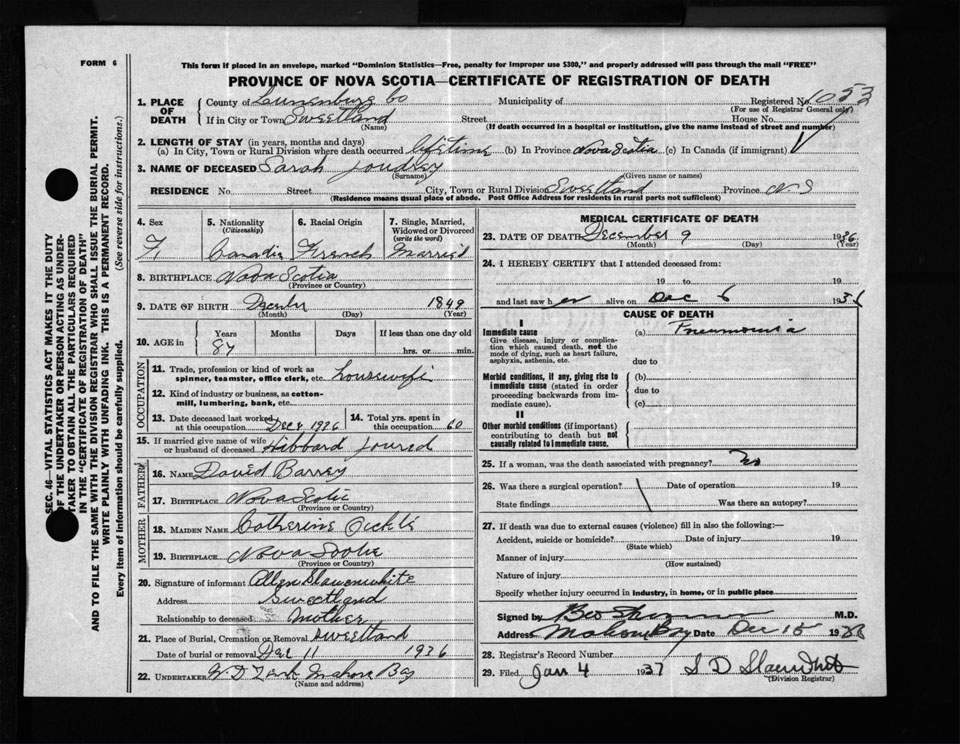 FORM 6
This form if placed in an envelope, marked "Dominion Statistics—Free, penalty for improper use $300," and properly addressed will pass through the mail "FREE"
PROVINCE OF NOVA SCOTIA—CERTIFICATE OF REGISTRATION OF DEATH
1. PLACE OF DEATH
County of Lunenburg Co Municipality of Registered No. 1053
(For use of Registrar General only)
If in City or Town Sweetland Street House No.
(Name) (If death occurred in a hospital or institution, give the name instead of street and number)
2. LENGTH OF STAY (in years, months and days)
(a) In City, Town or Rural Division where death occurred lifetime (b) In Province Nova Scotia (c) In Canada (if immigrant)
3. NAME OF DECEASED Sarah Joudrey
(Surname) (Given name or names)
RESIDENCE No. Street City, Town or Rural Division Sweetland Province N S
(Residence means usual place of abode. Post Office Address for residents in rural parts not sufficient)
4. Sex F
5. Nationality (Citizenship) Canadian
6. Racial Origin French
7. Single, Married, Widowed or Divorced (write the word) Married
8. BIRTHPLACE Nova Scotia
(Province or Country)
9. DATE OF BIRTH December 1849
(Month) (Day) (Year)
10. AGE in Years 87 Months Days If less than one day old hrs. or min.
OCCUPATION
11. Trade, profession or kind of work as spinner, teamster, office clerk, etc. housewife
12. Kind of industry or business, as cotton-mill, lumbering, bank, etc.
13. Date deceased last worked at this occupation Dec 8 1926
14. Total yrs. spent in this occupation 60
15. If married give name of wife or husband of deceased Hibbard
FATHER
16. NAME David Barney
17. BIRTHPLACE Nova Scotia
(Province or Country)
MOTHER
18. MAIDEN NAME Catherine
19. BIRTHPLACE Nova Scotia
(Province or Country)
20. Signature of informant Allen Slauenwhite
Address Sweetland
Relationship to deceased Mother
21. Place of Burial, Cremation or Removal Sweetland
Date of burial or removal Dec 11 1936
22. UNDERTAKER W. D. Mahone Bay
(Name and address)
MEDICAL CERTIFICATE OF DEATH
23. DATE OF DEATH December 9 1936
(Month) (Day) (Year)
24. I HEREBY CERTIFY that I attended deceased from:
19 to 19
and last saw her alive on Dec 6 1936
CAUSE OF DEATH
I
Immediate cause (a) Pneumonia
Give disease, injury or complication which caused death, not the mode of dying, such as heart failure, asphyxia, asthenia, etc.
due to
Morbid conditions, if any, giving rise to immediate cause (stated in order proceeding backwards from immediate cause).
(b)
due to
(c)
II
Other morbid conditions (if important) contributing to death but not causally related to immediate cause.
25. If a woman, was the death associated with pregnancy? no
26. Was there a surgical operation? Date of operation 19
State findings Was there an autopsy?
27. If death was due to external causes (violence) fill in also the following:—
Accident, suicide or homicide? Date of injury 19
(State which)
Manner of injury
(How sustained)
Nature of injury
Specify whether injury occurred in industry, in home, or in public place
Signed by M.D.
Address Mahone Bay Date Dec 15 19
28. Registrar's Record Number
29. Filed Jan 4 1937 S D Slauenwhite
(Division Registrar)
SEC. 46—VITAL STATISTICS ACT MAKES IT THE DUTY
OF THE UNDERTAKER OR PERSON ACTING AS UNDER-
TAKER TO OBTAIN ALL THE PARTICULARS REQUIRED
IN THE "CERTIFICATE OF REGISTRATION OF DEATH"
AND TO FILE THE SAME WITH THE DIVISION REGISTRAR WHO SHALL ISSUE THE BURIAL PERMIT.
WRITE PLAINLY WITH UNFADING INK. THIS IS A PERMANENT RECORD.
Every item of information should be carefully supplied. (See reverse side for instructions.)